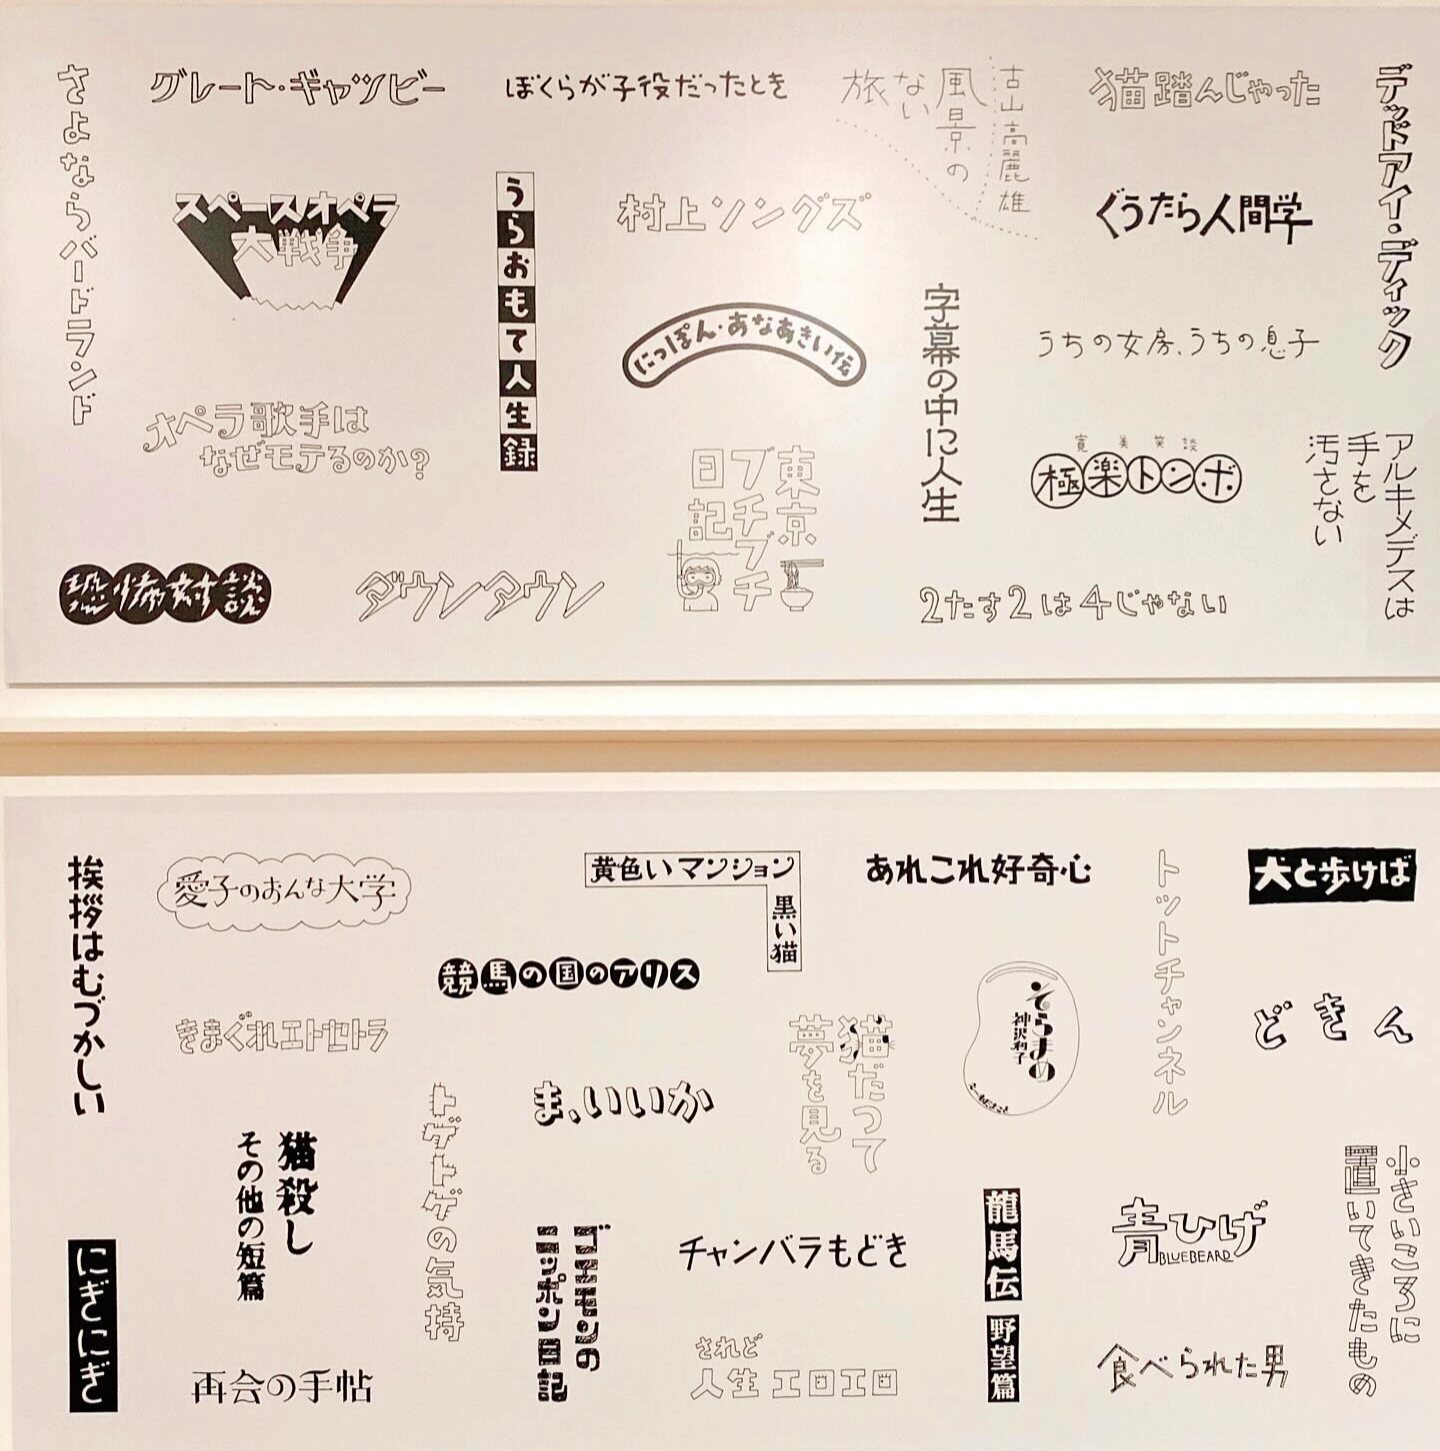 さよならバードランド
グレート・ギャツビー
ぼくらが子役だったとき
古山高麗雄
風景の
ない
旅
猫踏んじゃった
デッドアイ・ディック
スペースオペラ
大戦争
うらおもて人生録
村上ソングズ
ぐうたら人間学
にっぽん・あなあきい伝
字幕の中に人生
うちの女房、うちの息子
オペラ歌手は
なぜモテるのか?
東京
ブチブチ
日記
寛美笑談
極楽トンボ
アルキメデスは
手を
汚さない
恐怖対談
ダウンタウン
2たす2は4じゃない
挨拶はむづかしい
愛子のおんな大学
黄色いマンション
黒い猫
あれこれ好奇心
トットチャンネル
犬と歩けば
競馬の国のアリス
そらまめ
神沢利子
どきん
きまぐれエトセトラ
トゲトゲの気持
ま、いいか
猫だって
夢を見る
猫殺し
その他の短篇
小さいころに
置いてきたもの
龍馬伝 野望篇
青ひげ
BLUEBEARD
にぎにぎ
ゴエモンの
ニッポン日記
チャンバラもどき
再会の手帖
されど
人生エロエロ
食べられた男